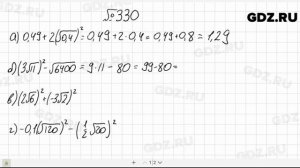 GDZ.RU
№330
а) 0,49+2(√0,4)² = 0,49+2·0,4 = 0,49+0,8 = 1,29
б) (3√11)² - √6400 = 9·11 - 80 = 99-80 =
в) (2√6)² + (-3√2)² =
г) -0,1(√120)² - (1/2 √20)²
1/2
GDZ.RU